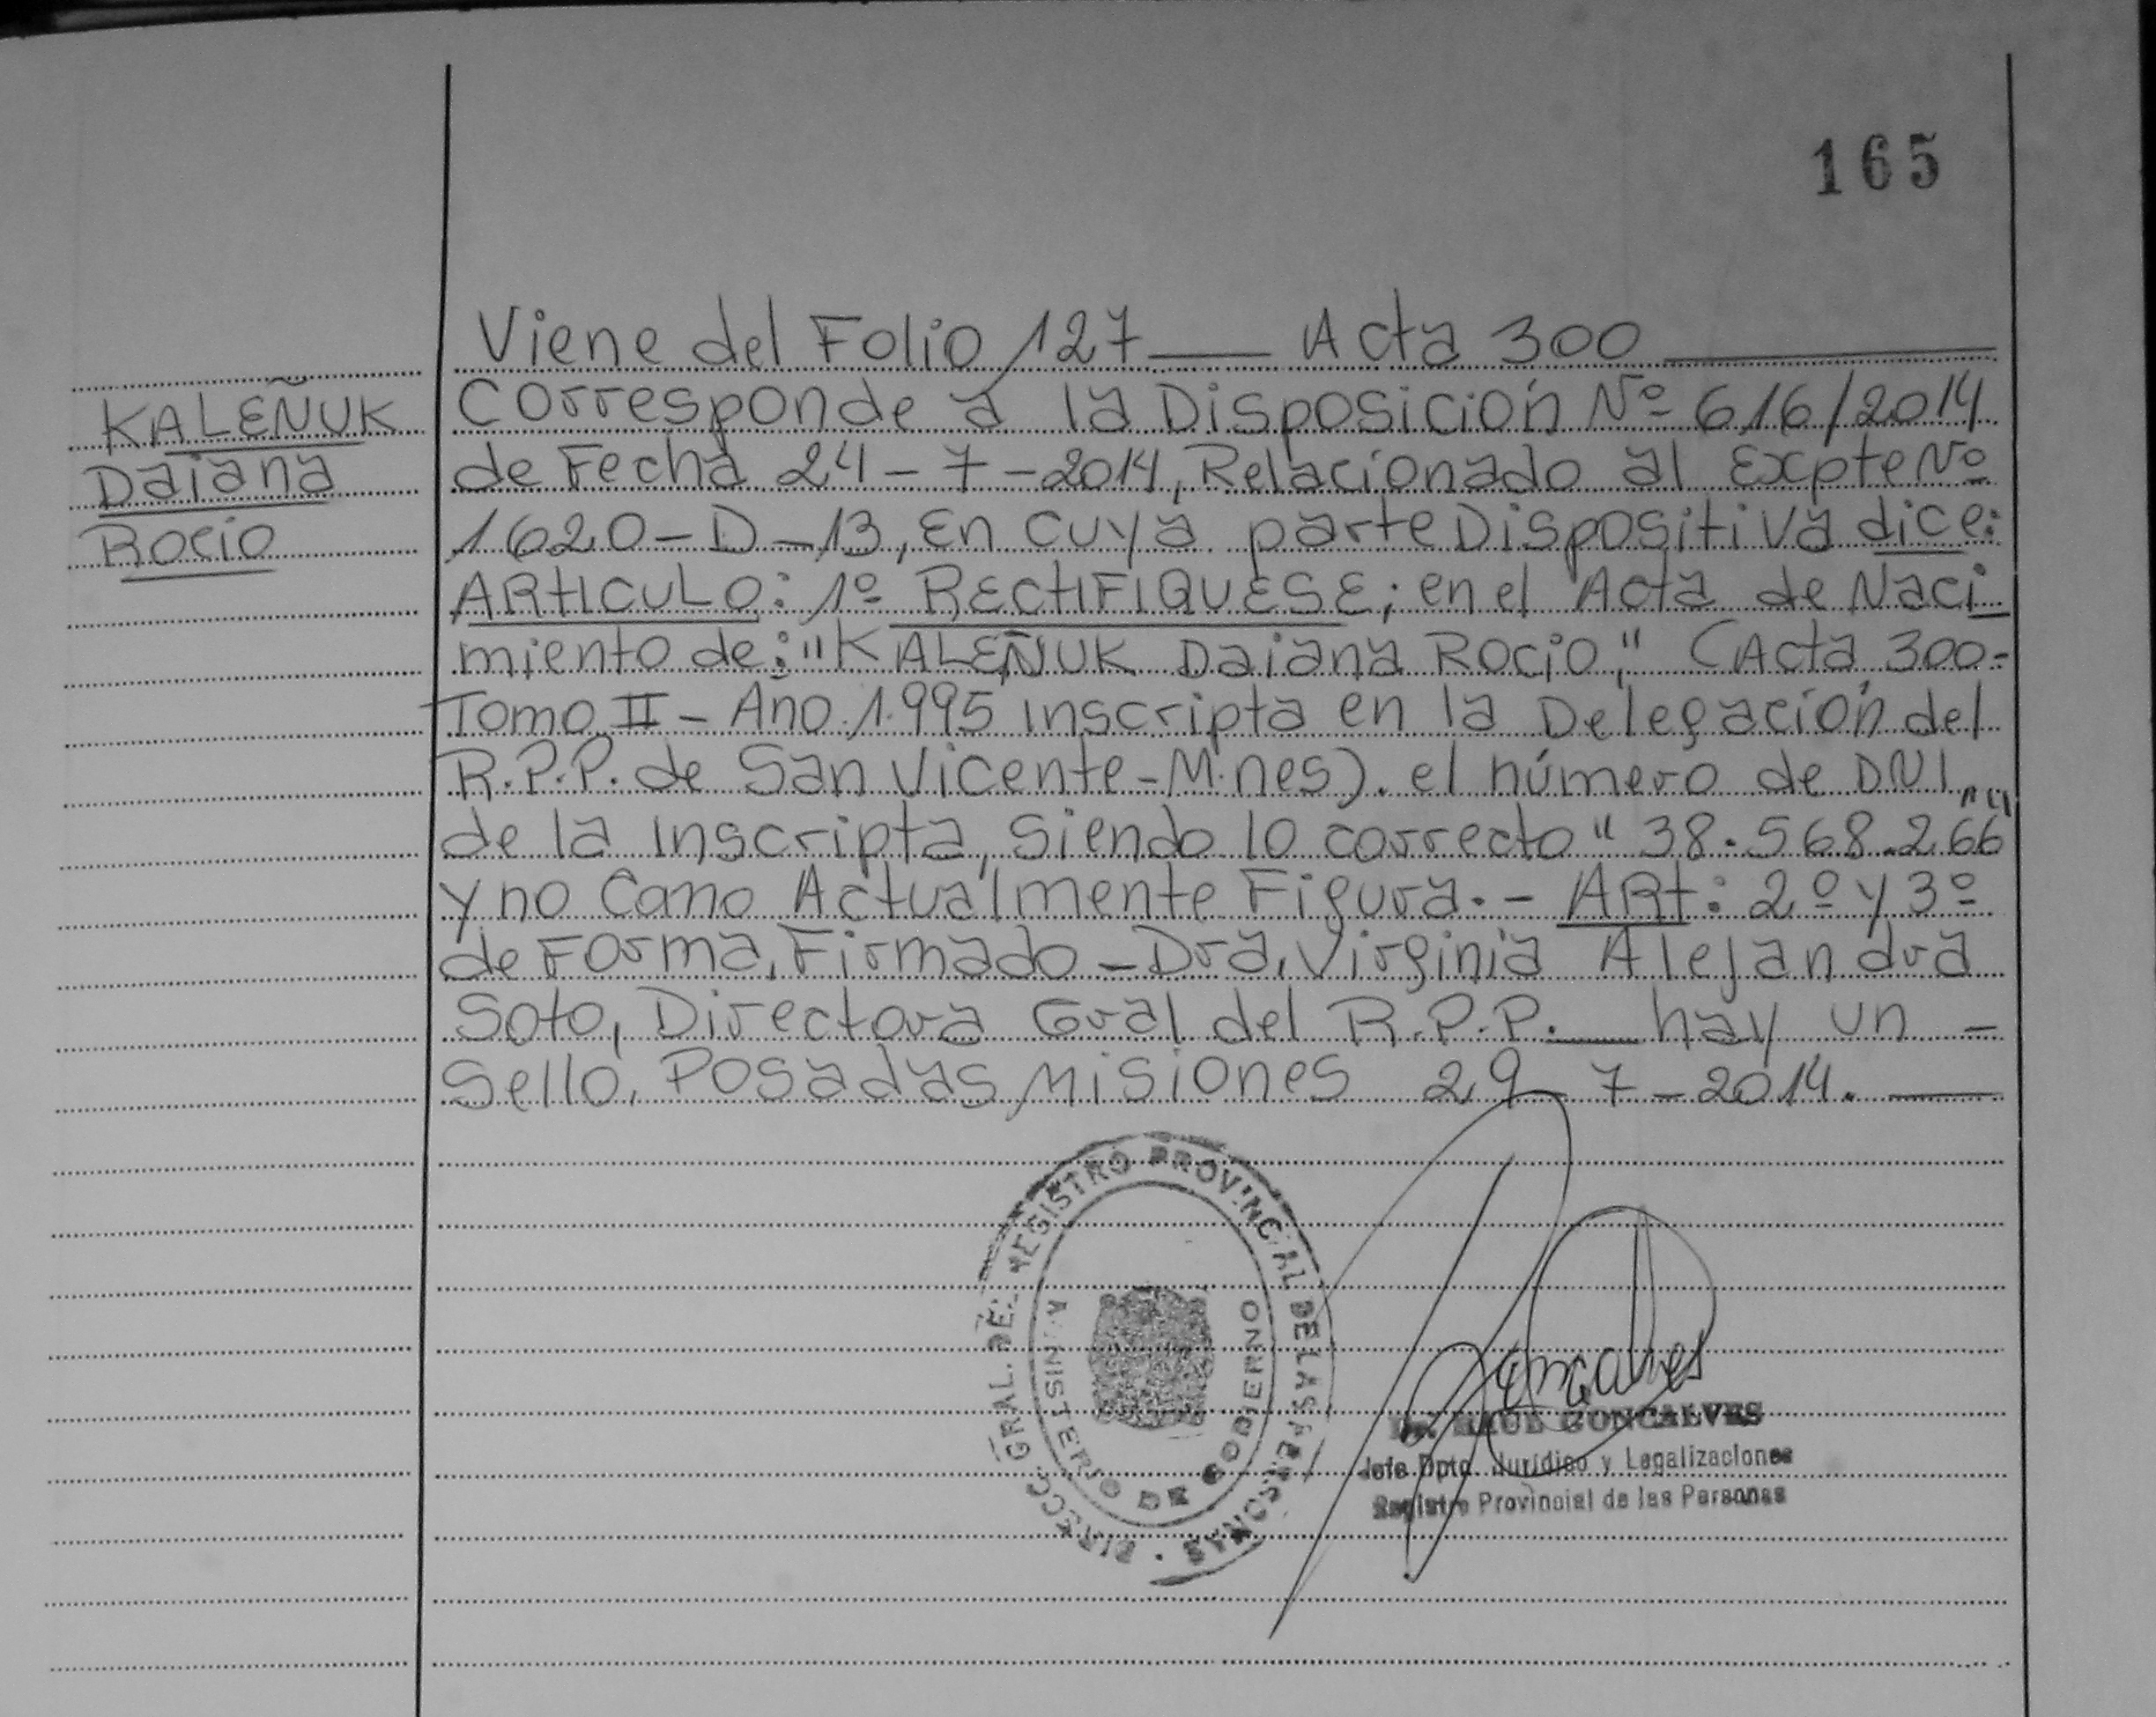 165
Viene del Folio 127 — Acta 300 —
KALEÑUK
Daiana
Rocio
Corresponde a la Disposición Nº 616/2014
de Fecha 24-7-2014, Relacionado al Expte Nº
1620-D-13, En cuya parte Dispositiva dice:
ARTICULO: 1º RECTIFIQUESE; en el Acta de Naci
miento de: "KALEÑUK Daiana Rocio," (Acta 300-
Tomo II - Ano 1.995 inscripta en la Delegación del
R.P.P. de San Vicente-M.nes). el número de DNI.
de la inscripta, siendo lo correcto "38.568.266"
y no Como Actualmente Figura.- ARt: 2º y 3º
de Forma, Firmado - Dra. Virginia Alejandra
Soto, Directora Gral del R.P.P. — hay un -
Sello, Posadas Misiones 29-7-2014. —
DIRECC. GRAL. DEL REGISTRO PROVINCIAL DE LAS PERSONAS
MINISTERIO DE GOBIERNO
Goncalves
Dr. RAUL GONCALVES
Jefe Dpto. Jurídico y Legalizaciones
Registro Provincial de las Personas